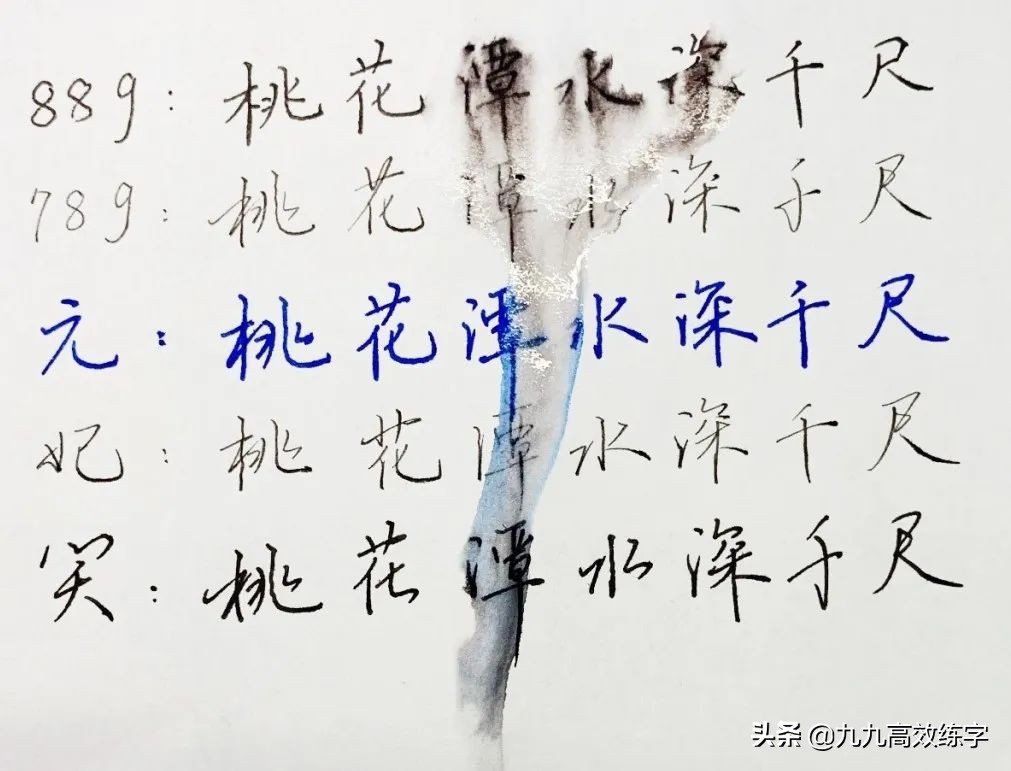 889：桃花潭水深千尺
789：桃花潭水深千尺
元：桃花潭水深千尺
妃：桃花潭水深千尺
笑：桃花潭水深千尺
头条 @九九高效练字